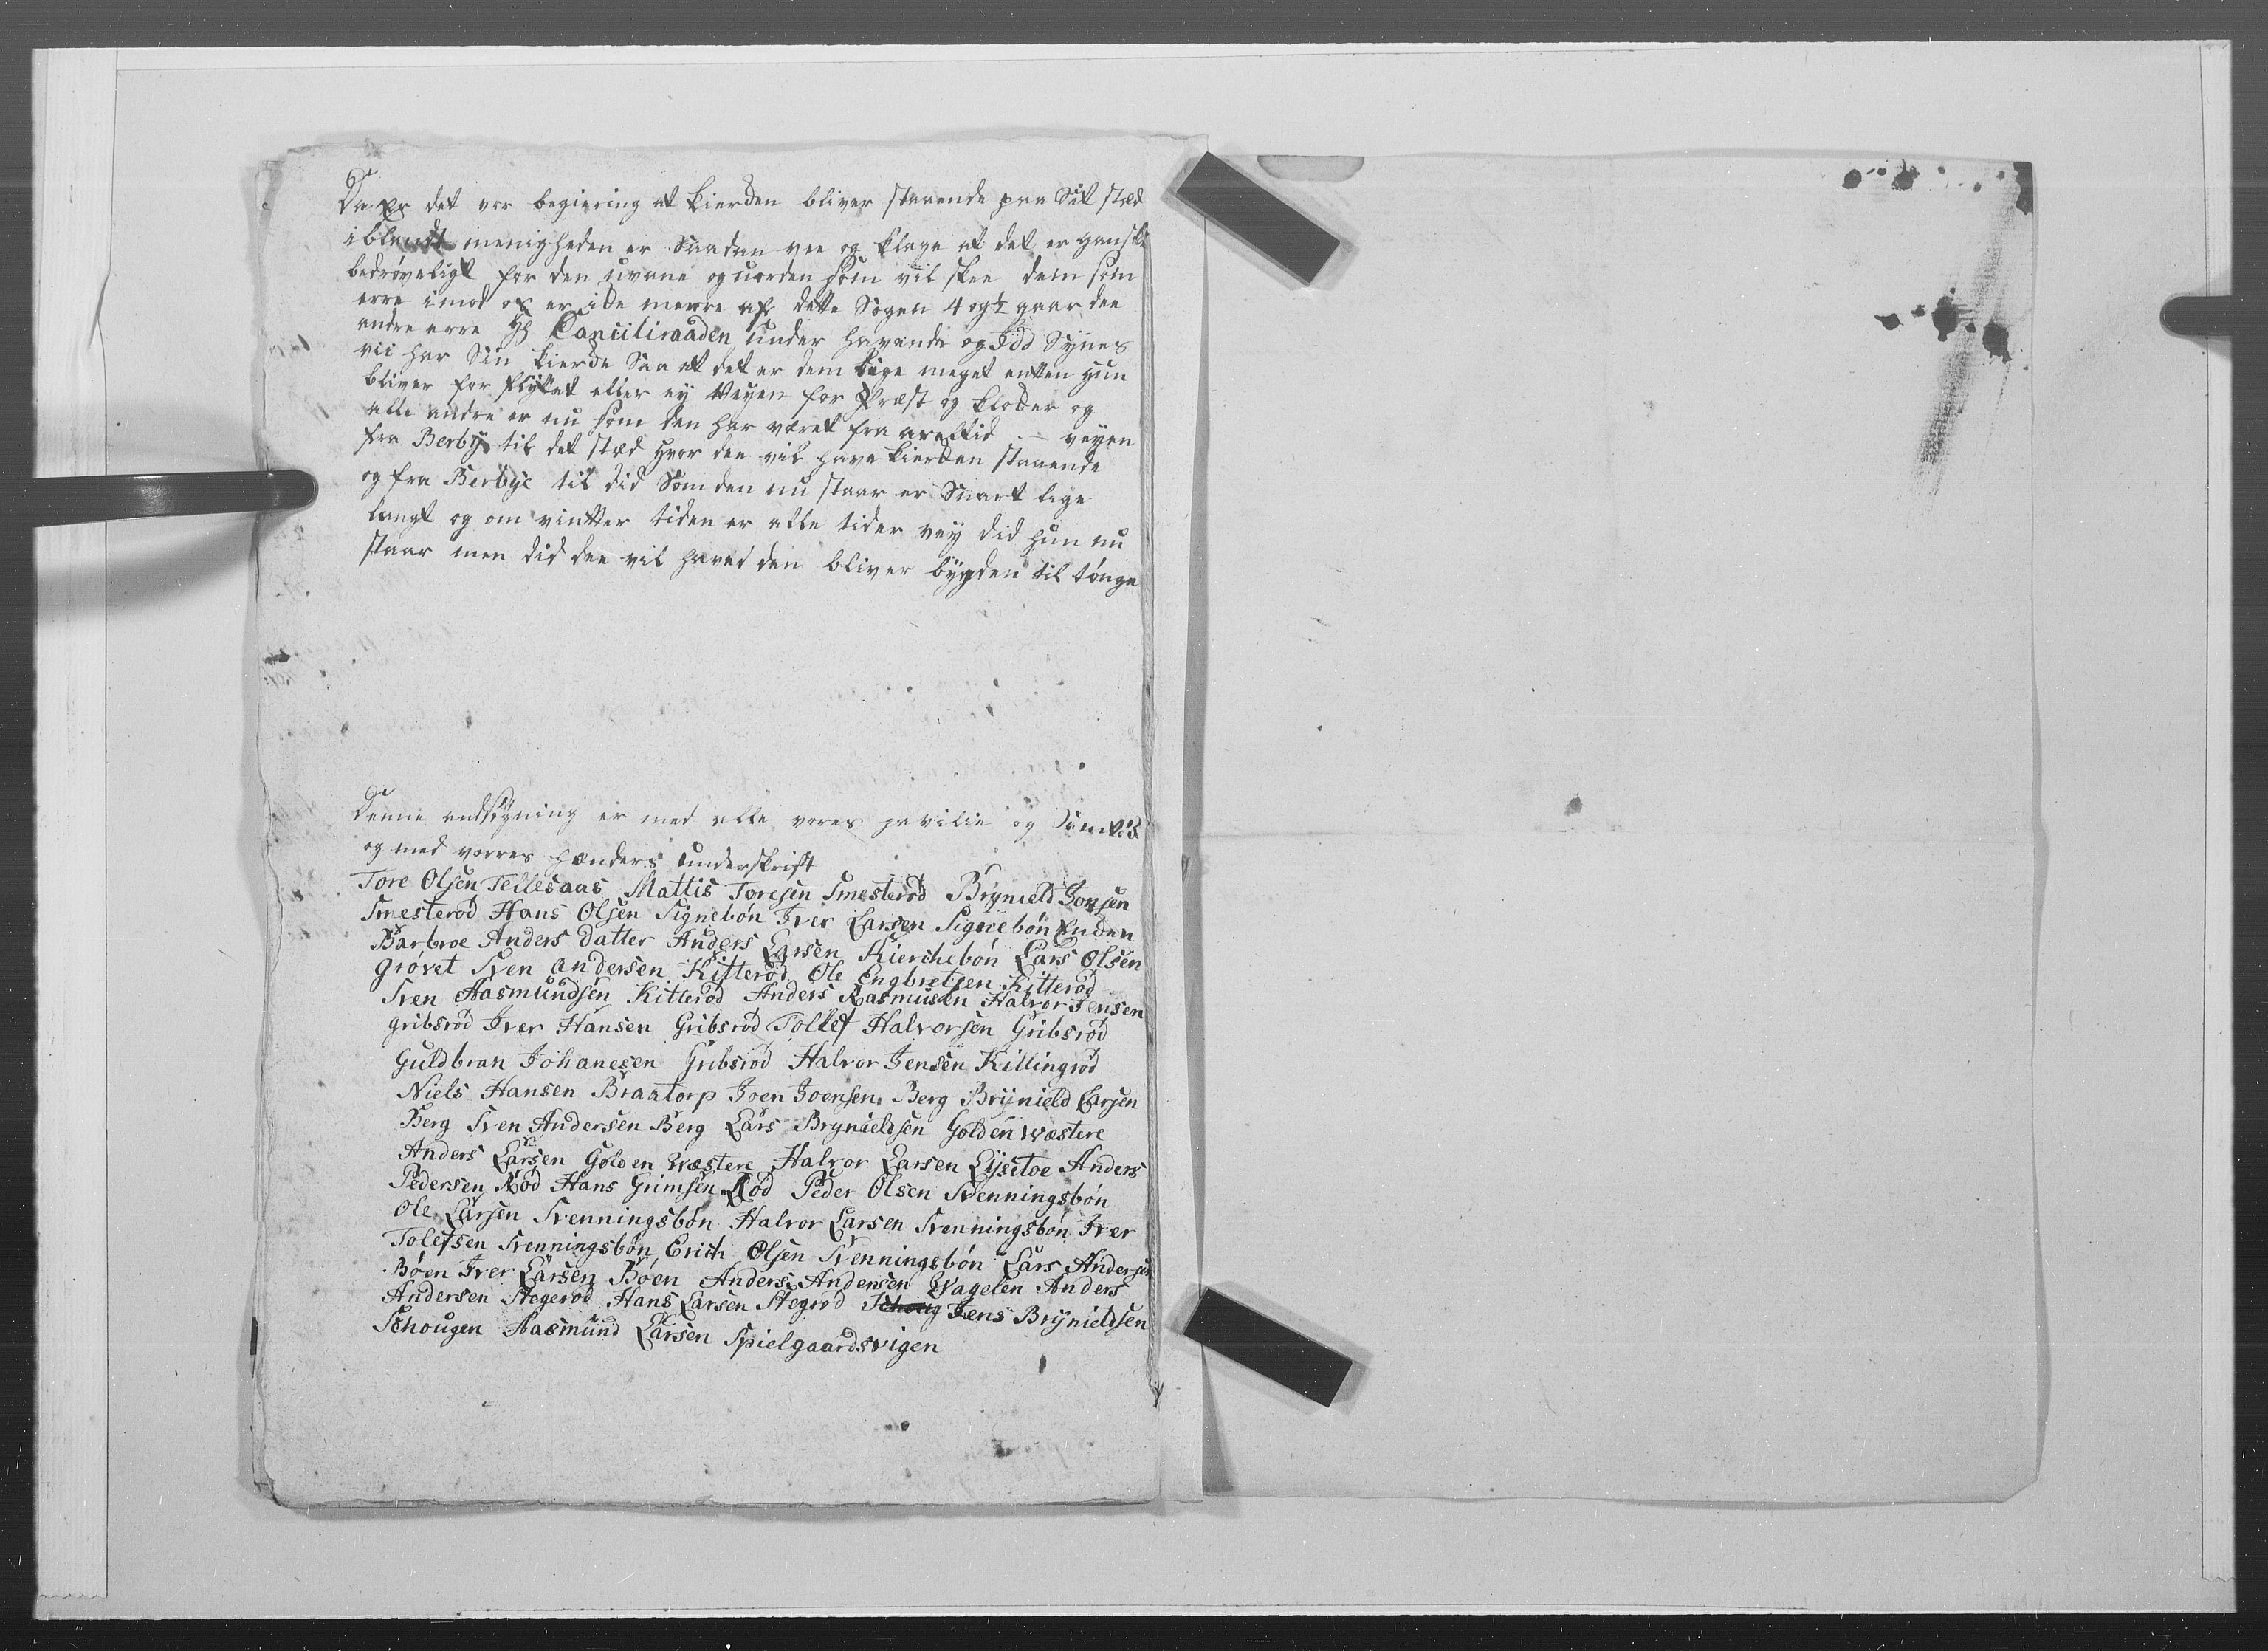 Da er det vor begiering at kierken bliver staaende paa Sit stæd
iblandt menigheden er Saadan vee og klage at det er ganske
bedrøveligt for den uvane og uorden som vil skee dem som
erre imod os er ike meere af dette Sogen 4 og ½ gaar dee
andre erre Hr Canciliraaden under havende og Idd Synes
vii har Sin kierke Saa at det er dem lige meget enten hun
bliver for flyttet eller ey Veyen for Præst og klocker og
alle andre er nu som den har været fra areltid . – veyen
fra Berbye til det stæd hvor dee vil have kierken staaende
og fra Berbye til did Som den nu staar er Snart lige
langt og om vintter tiden er alle tider vey did hun nu
staar men did dee vil haved den bliver bygden til tønge
Denne andsøgning er med alle vores ja vilie og Samtök
og med vorres hænders underskrift
Tore Olsen Tellesaas Mattis Toresen Smesterød Brynield Jonsen
Smesterød Hans Olsen Signebøn Iver Larsen Signebøn Enken
Barbroe Anders datter Anders Larsen Kierchebøn Lars Olsen
grøvet Sven andersen Kitterød Ole Engbretsen Kitterød
Sven Aasmundsen Kitterød Anders Rasmusen Halvor Jensen
gribsrød Iver Hansen Gribsrød Tollef Halvorsen Gribsrød
Guldbran Johanesen Gribsrød Halvor Jensen Killingrød
Niels Hansen Braatorp Joen Joensen Berg Brynield Larsen
Berg Sven Andersen Berg Lars Brynieldsen Golden wæstere
Anders Larsen Golden Wæstere Halvor Larsen Lysetoe Anders
Pedersen Rød Hans Grimsen Rød Peder Olsen Svenningsbøn
Ole Larsen Svenningsbøn Halvor Larsen Svenningsbøn Iver
Tolefsen Svenningsbøn Erich Olsen Svenningsbøn Lars Andersen
Bøen Iver Larsen Bøen Anders Andersen Wagelen Anders
Andersen Stegerød Hans Larsen Stegrød Schoug Jens Brynieldsen
Schougen Aasmund Larsen Spielgaardsvigen